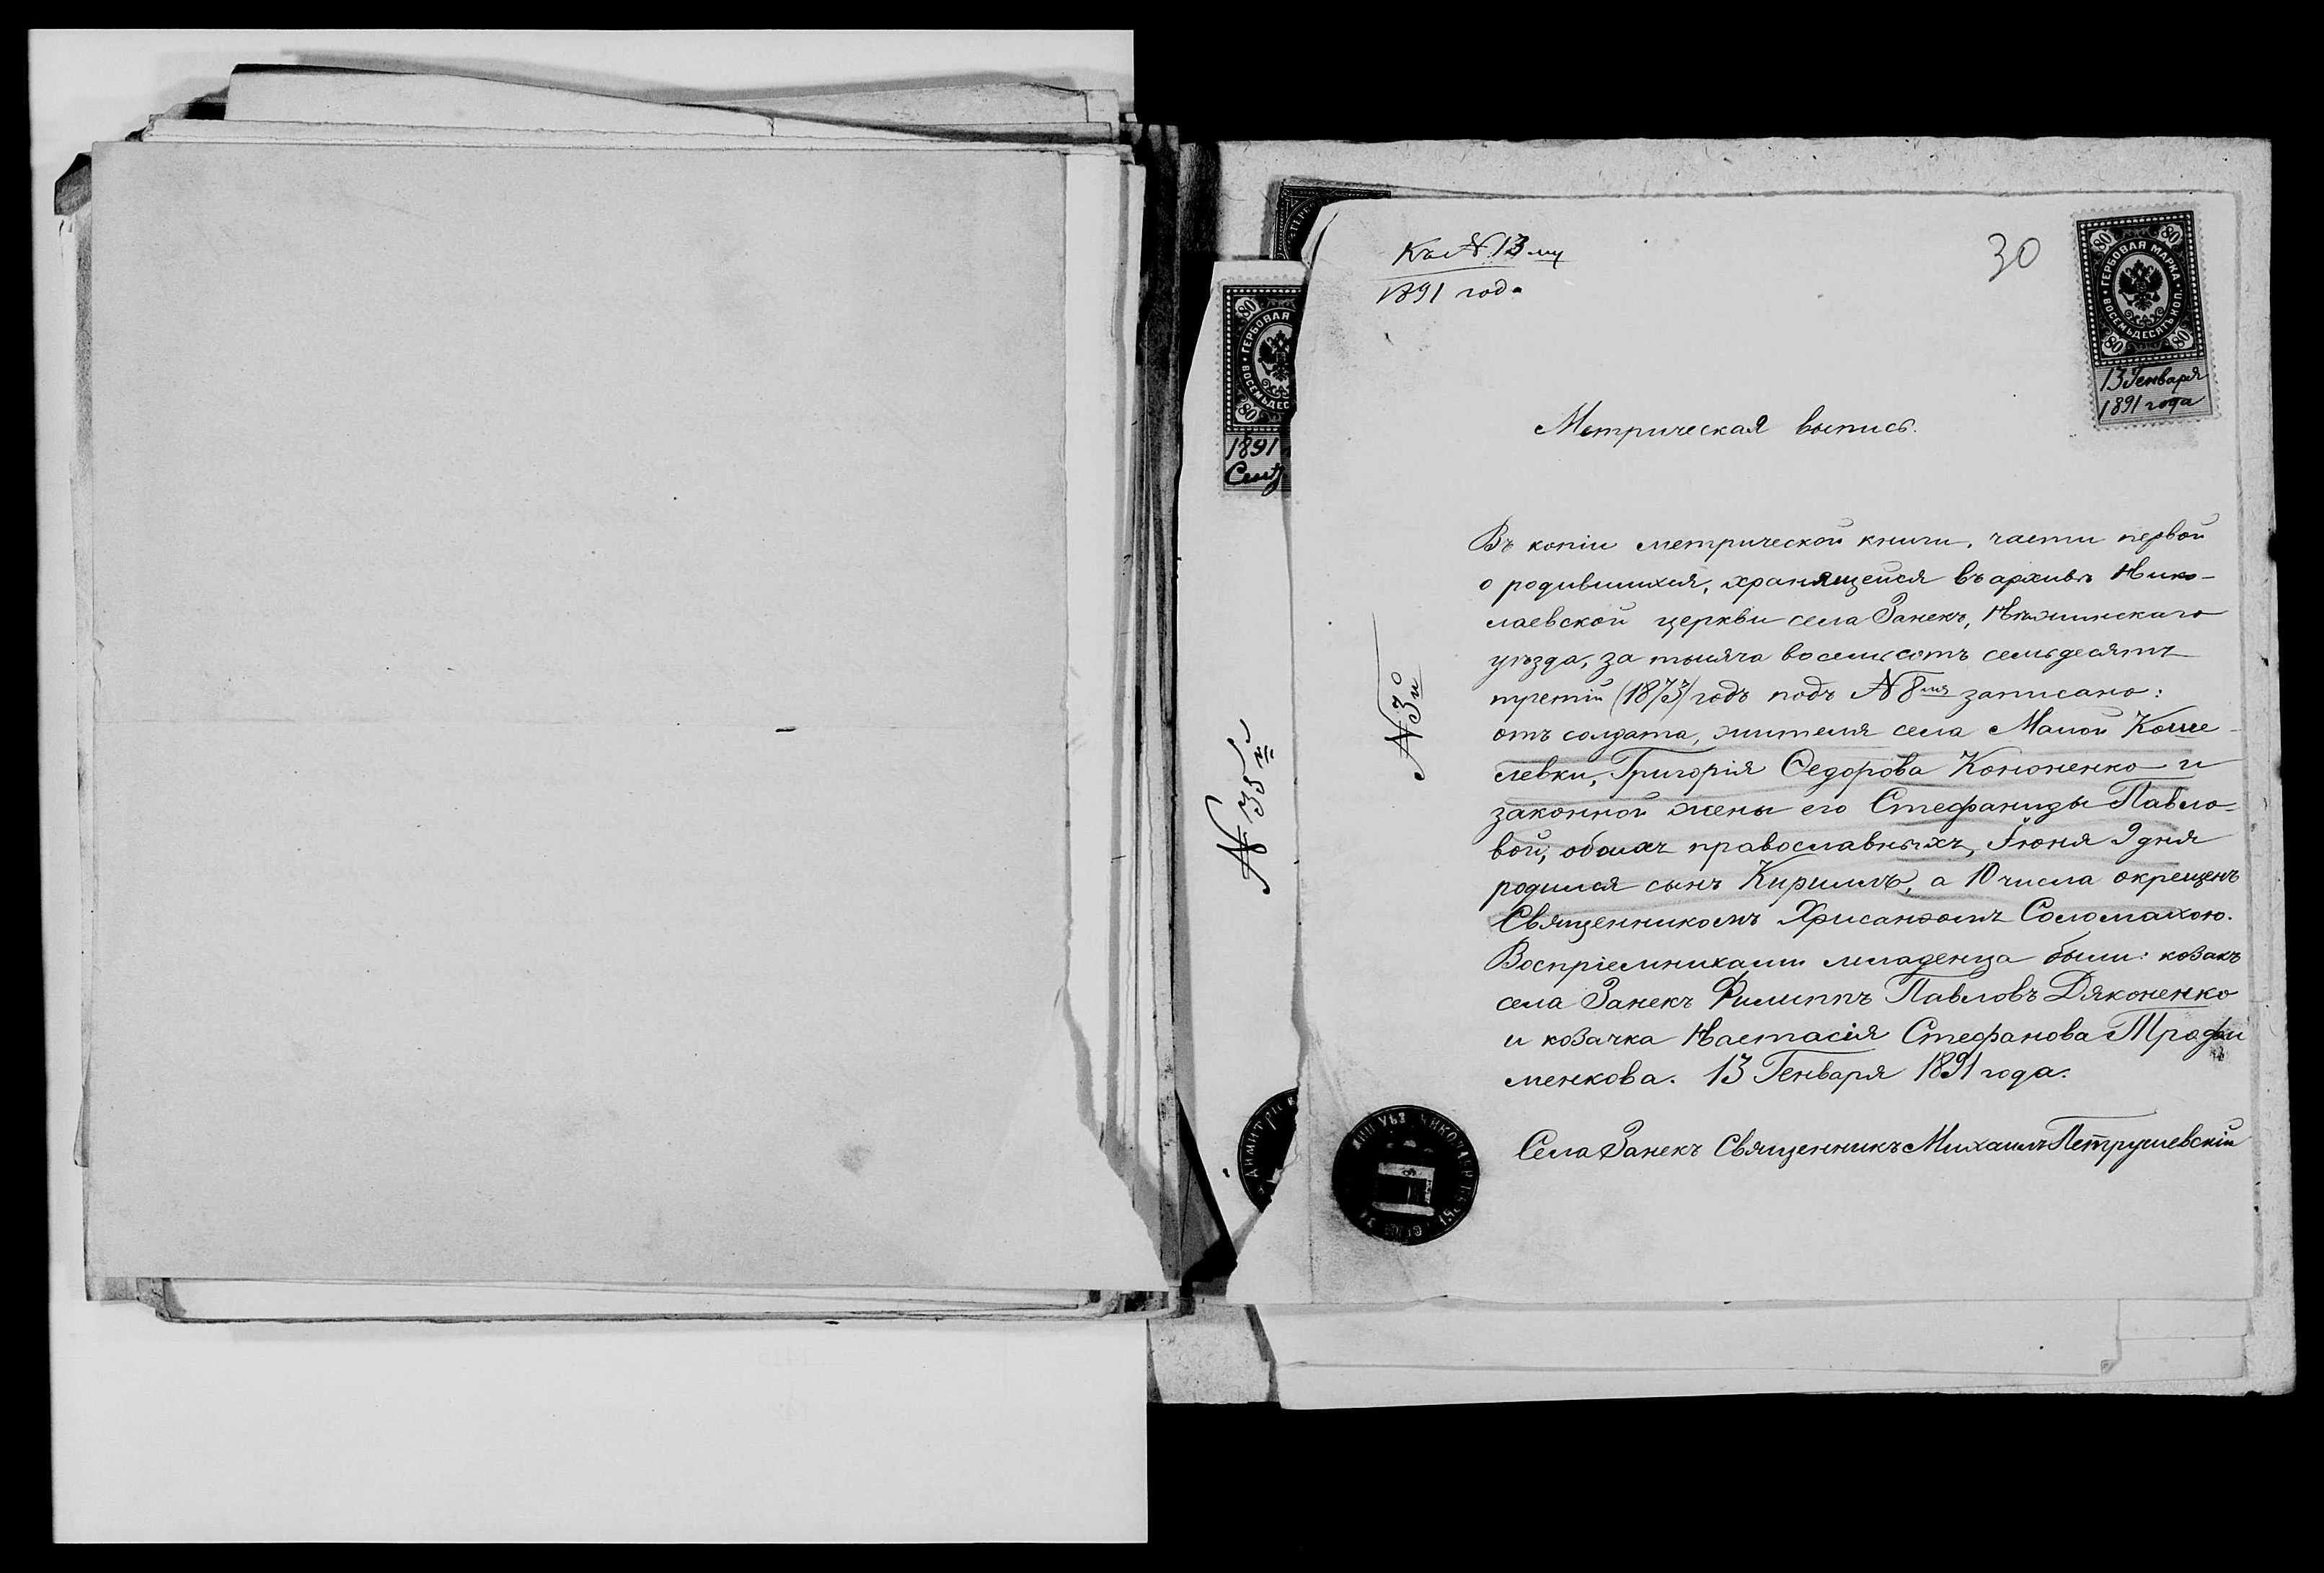 Къ № 13 му
1891 года
30
80 80
ГЕРБОВАЯ МАРКА
ВОСЕМЬДЕСЯТЪ КОП.
80 80
13 Генваря
1891 года
80
ГЕРБОВАЯ
ВОСЕМЬДЕС
80
1891
Сент
Метрическая выпись.
Въ копіи метрической книги, части первой
о родившихся, хранящейся въ архивѣ Нико-
лаевской церкви села Занекъ, Нѣжинскаго
уѣзда, за тысяча восемьсотъ семьдесятъ
третій (1873) годъ подъ № 8мъ записано:
отъ солдата, жителя села Малой Коше-
левки, Григорія Ѳедорова Кононенко и
законной жены его Стефаниды Павло-
вой, обоихъ православныхъ, Іюня 9 дня
родился сынъ Кириллъ, а 10 числа окрещенъ
Священникомъ Хрисанѳомъ Соломахою.
Воспріемниками младенца были: козакъ
села Занекъ Филиппъ Павловъ Дяконенко
и козачка Настасія Стефанова Трофи
менкова. 13 Генваря 1891 года.
Села Занекъ Священникъ Михаилъ Петрушевскій
№ 30й
№ 35й
ДИМИТРІЕ